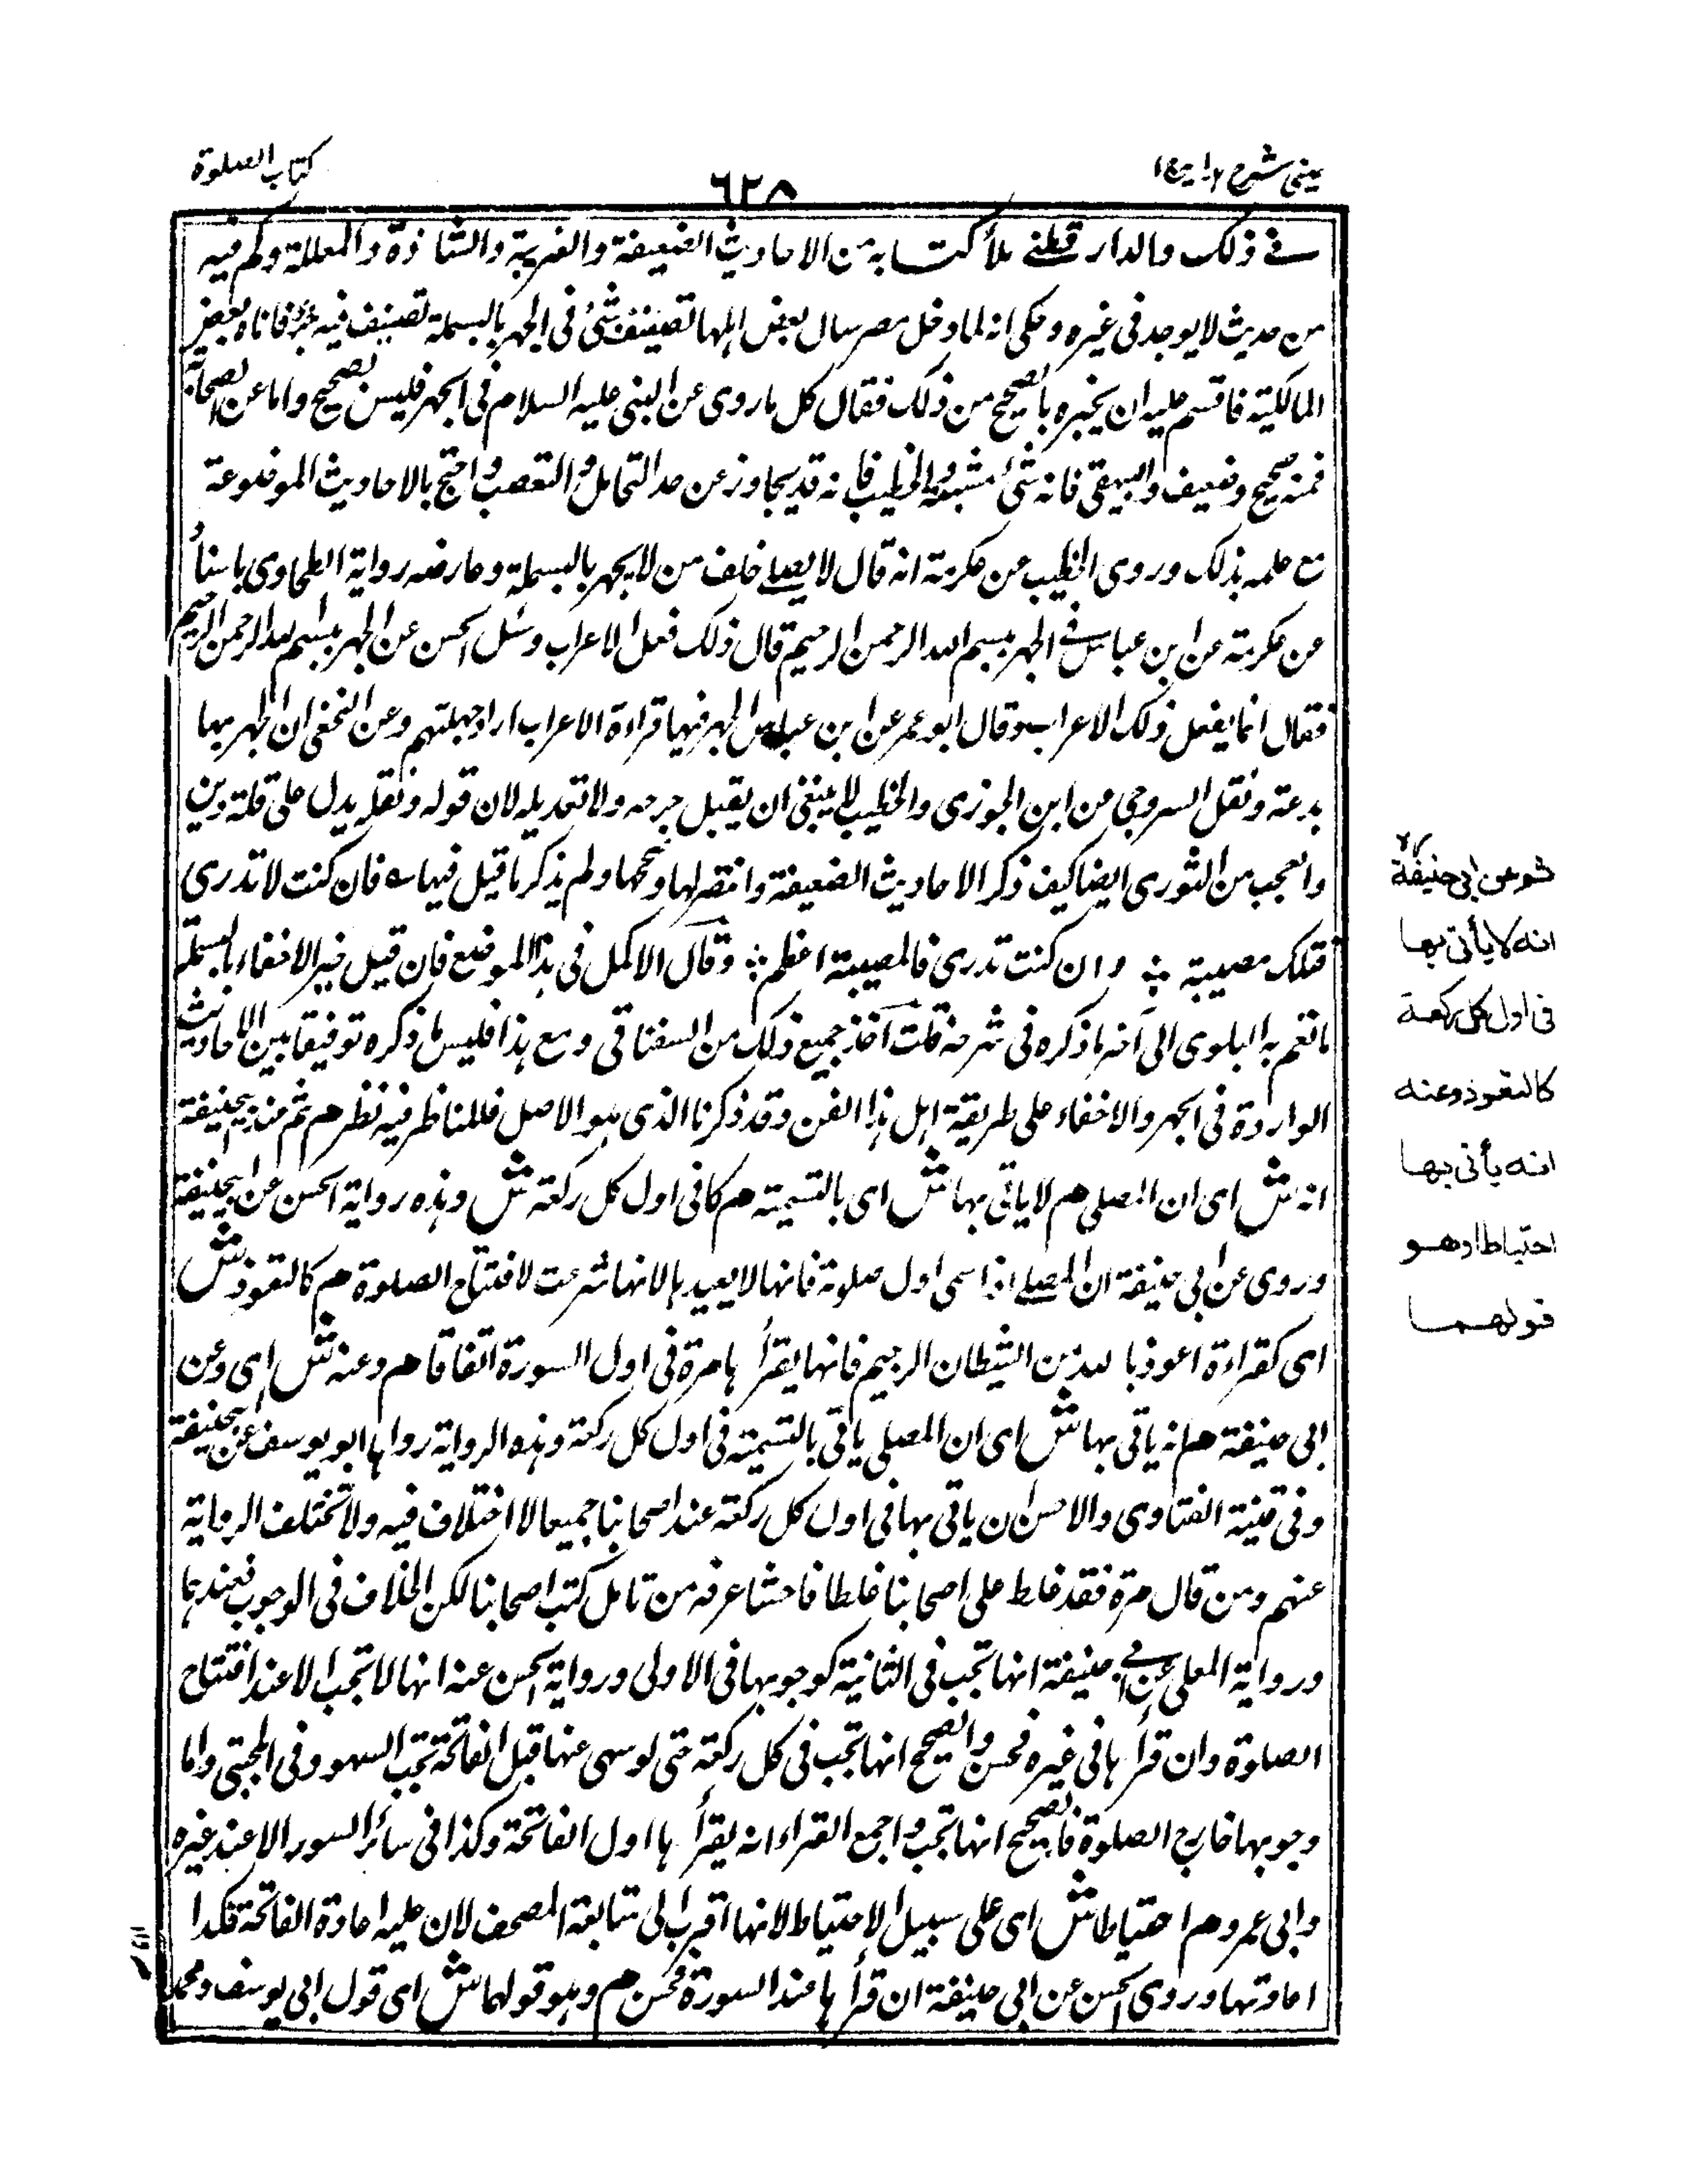 عینی شرح هدایه ج ا
٦٢٨
کتاب الصلوة
فے ذلک والدار قطنے ملأ کتابه من الاحادیث الضعیفة والغریبة والشاذة والمعللة وکم فیه
من حدیث لایوجد فی غیره وحکی انه لما دخل مصر سال بعض اهلها تصنیف شئ فی الجهر بالبسملة تصنیف فیه جزء فاتاه بعض
المالکیة فاقسم علیه ان یخبره بالصحیح من ذلک فقال کل ما روی عن النبی علیه السلام فی الجهر فلیس بصحیح واما عن الصحابة
فمنه صحیح وضعیف والبیهقی فانه شئ مشبه والخطیب فانه قد یجاوز عن حد التحامل والتعصب واحتج بالاحادیث الموضوعة
مع علمه بذلک وروی الخطیب عن عکرمة انه قال لا یصلے خلف من لا یجهر بالبسملة وعارضه روایة الطحاوی باسناد
عن عکرمة عن ابن عباس فے الجهر ببسم الله الرحمن الرحیم قال ذلک فعل الاعراب وسئل الحسن عن الجهر ببسم الله الرحمن الرحیم
فقال انما یفعل ذلک الاعراب وقال ابو عمر عن ابن عباس الجهر فیها قراءة الاعراب اراد جهلتهم وعن النخعی ان الجهر بها
بدعة ونقل السروجی من ابن الجوزی والخطیب لا ینبغی ان یقبل جرحه ولا تعدیله لان قوله ونقله یدل علی قلة دین
والعجب من النوری ایضا کیف ذکر الاحادیث الضعیفة وانتصر لها وصححها ولم یذکر ما قیل فیها ے فان کنت لا تدری
فتلک مصیبة ؛ وان کنت تدری فالمصیبة اعظم ؛ وقال الاکمل فی هذا الموضع فان قیل خبر الاخفاء بالبسملة
ما تعم به البلوی الی آخر ما ذکره فی شرحه قلت اخذ جمیع ذلک من السغناقی ومع هذا فلیس ما ذکره توفیقا بین الاحادیث
الواردة فی الجهر والاخفاء علی طریقة اهل هذا الفن وقد ذکرنا الذی هو الاصل فللناظر فیه نظر م ثم عن ابی حنیفة
انه ش ای ان المصلی م لا یاتی بها ش ای بالتسمیة م کا فی اول کل رکعة ش وهذه روایة الحسن عن ابی حنیفة
وروی عن ابی حنیفة ان المصلے اذا سمی اول صلوته فانها لا یعیدها لانها شرعت لافتتاح الصلوة م کالتعوذ ش
ای کقراءة اعوذ بالله من الشیطان الرجیم فانها یقرأ ها مرة فی اول السورة اتفاقا م وعنه ش ای وعن
ابی حنیفة م انه یاتی بها ش ای ان المصلی یاتی بالتسمیة فی اول کل رکعة وهذه الروایة رواها ابو یوسف عن ابی حنیفة
وفی قنیة الفتاوی والاحسن ان یاتی بها فی اول کل رکعة عند اصحابنا جمیعا لا اختلاف فیه ولا تختلف الروایة
عنهم ومن قال مرة فقد غلط علی اصحابنا غلطا فاحشا عرفه من تامل کتب اصحابنا لکن الخلاف فی الوجوب فعندهما
وروایة المعلی عن ابی حنیفة انها تجب فی الثانیة کوجوبها فی الاولی وروایة الحسن عنه انها لا تجب الا عند افتتاح
الصلوة وان قرأ ها فی غیره فحسن والصحیح انها تجب فی کل رکعة حتی لو سهی عنها قبل الفاتحة تجب السهو وفی المجتبی واما
وجوبها خارج الصلوة فالصحیح انها تجب واجمع القراء انه یقرأ ها اول الفاتحة وکذا فی سائر السور الا عند غیره
وابی عمرو م احتیاطا ش ای علی سبیل الاحتیاط لانها اقرب الی متابعة المصحف لان علیه اعادة الفاتحة فکذا
اعادتها وروی الحسن عن ابی حنیفة ان قرأ ها عند السورة فحسن م وهو قولهما ش ای قول ابی یوسف ومحمد
ثم عن ابی حنیفة
انه لا یأتی بها
فی اول کل رکعة
کالتعوذ وعنه
انه یأتی بها
احتیاطا وهو
قولهما